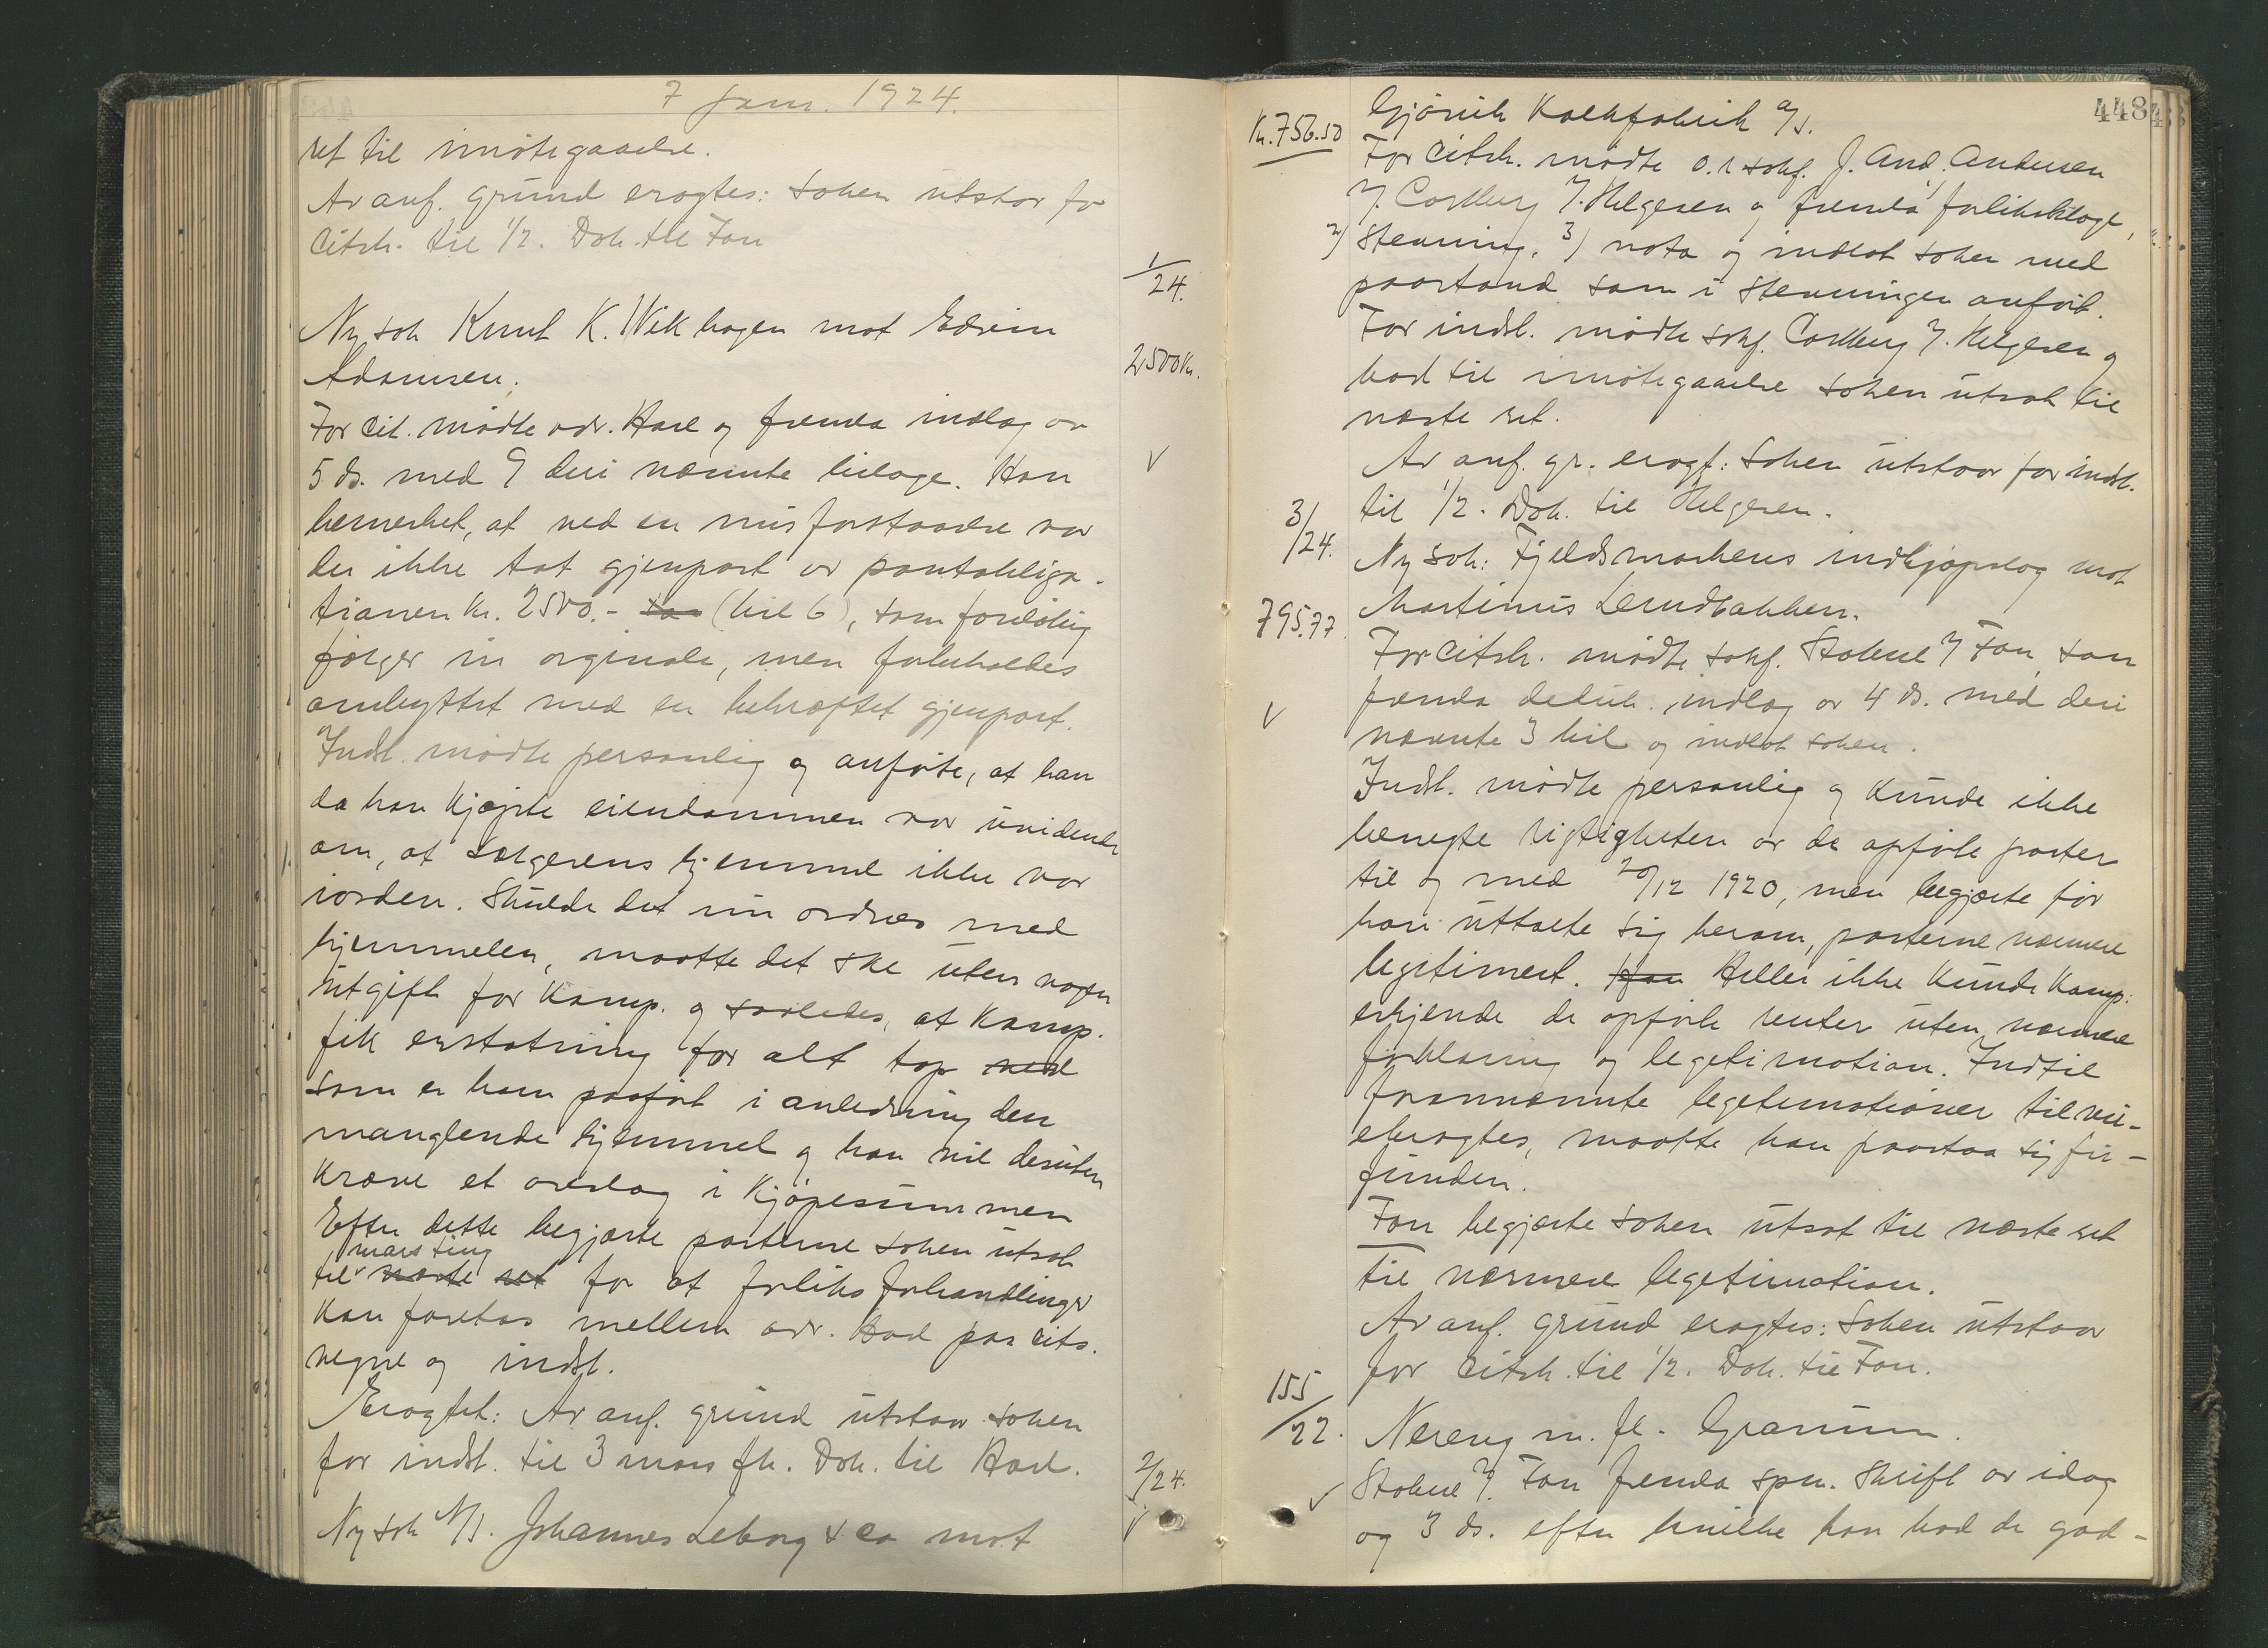 7 Janr. 1924.
ret til imøtegaaelse.
Av anf. grund eragtes: Saken utstaar for
Citsk. til 1/2. Dok. til Fon
1/24.
Ny sak Knut K. Wikhagen mot Edvin
Adamsen.
2500 Kr.
For cit. mødte adv. Hasl og fremla indlæg av
5 ds. med 9 deri nævnte bilage. Han
V
bemerket, at ved en misforstaaelse var
der ikke tat gjenpart av pantobliga-
tionen Kr. 2500.- (bil 6), som foreløbig
følger in orginale, men forbeholdes
ombyttet med en bekræftet gjenpart.
Indst. mødte personlig og anførte, at han
da han kjøpte eiendommen var uvidende
om, at sælgerens hjemmel ikke var
iorden. Skulde det nu ordnes med
hjemmelen, maatte det ske uten nogen
utgift for Komp. og saaledes, at Komp.
fik erstatning for alt tap ved
som er ham paaført i anledning den
manglende hjemmel og han vil desuten
kræve et avslag i kjøpesummen
Efter dette begjærte parterne saken utsat
mars ting
til næste ret for at forliksforhandlinger
kan foretas mellem adv. Hasl paa cits.
vegne og indst.
Eragtet: Av anf. grund utstaar saken
for indst. til 3 mars fk. Dok. til Hasl.
2/24.
V
Ny sak A/S. Johannes Leborg & Co mot
448
Gjøvik Kalkfabrik A/S.
Kr. 756.50
For Citsk. mødte o.r.sakf. J. And. Andersen
v/ Carlberg v/ Helgesen og fremla 1/ forliksklage,
2) Stevning, 3) nota og indlot saken med
paastand som i stevningen anført.
For indst. mødte sakf. Carlberg v/ Helgesen og
bad til imøtegaaelse saken utsat til
næste ret.
Av anf. gr. eragt: Saken utstaar for indst.
til 1/2. Dok. til Helgesen.
3/24.
Ny sak: Fjeldsmarkens indkjøpslag mot
Martinus Lerudbakken.
795.77
For Citsk. mødte sakf. Stabell v/ Fon, som
fremla deduk. indlæg av 4 ds. med deri
V
nævnte 3 bil og indlot saken.
Indst. mødte personlig og kunde ikke
benegte rigtigheten av de opførte poster
til og med 20/12 1920, men begjærte før
han uttalte sig herom, posterne nærmere
legitimert. Han Heller ikke kunde Komp.
erkjende de opførte renter uten nærmere
forklaring og legetimation. Indtil
forannævnte legetimationer tilveie-
bragtes, maatte han paastaa sig fri-
funden.
Fon begjærte saken utsat til næste ret
til nærmere legetimation.
Av anf. grund eragtes: Saken utstaar
for Citsk. til 1/2. Dok. til Fon.
155/22.
Nereng m. fl. - Granum.
V
Stabell v/ Fon fremla spm. skrift av idag
og 3 ds. efter hvilke han bad de god-